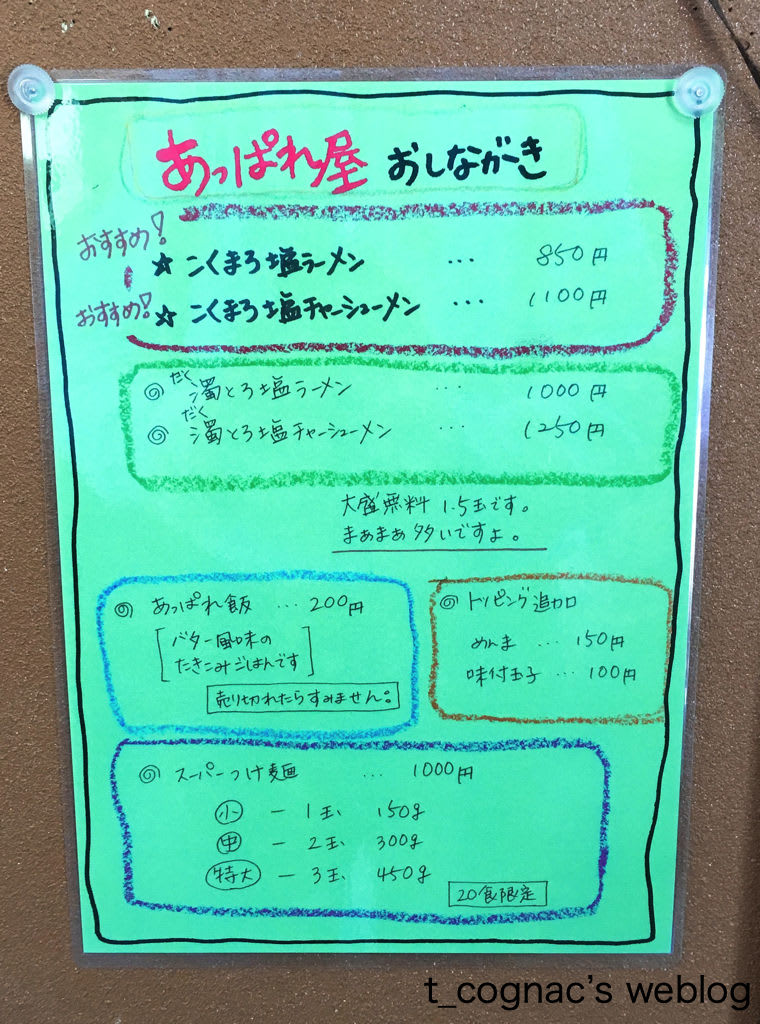 あっぱれ屋 おしながき
おすすめ! ☆ こくまろ塩ラーメン ... 850円
おすすめ! ☆ こくまろ塩チャーシューメン ... 1100円
◎ 濁とろ塩ラーメン ... 1000円
だく
◎ 濁とろ塩チャーシューメン ... 1250円
だく
大盛無料 1.5玉です。
まぁまぁ多いですよ。
◎ あっぱれ飯 ... 200円
[バター風味の
たきこみごはんです]
売り切れたらすみません。
◎ トッピング追加
めんま ... 150円
味付玉子 ... 100円
◎ スーパーつけ麺 ... 1000円
小 ー 1玉、 150g
中 ー 2玉、 300g
特大 ー 3玉、 450g
20食限定
t_cognac's weblog